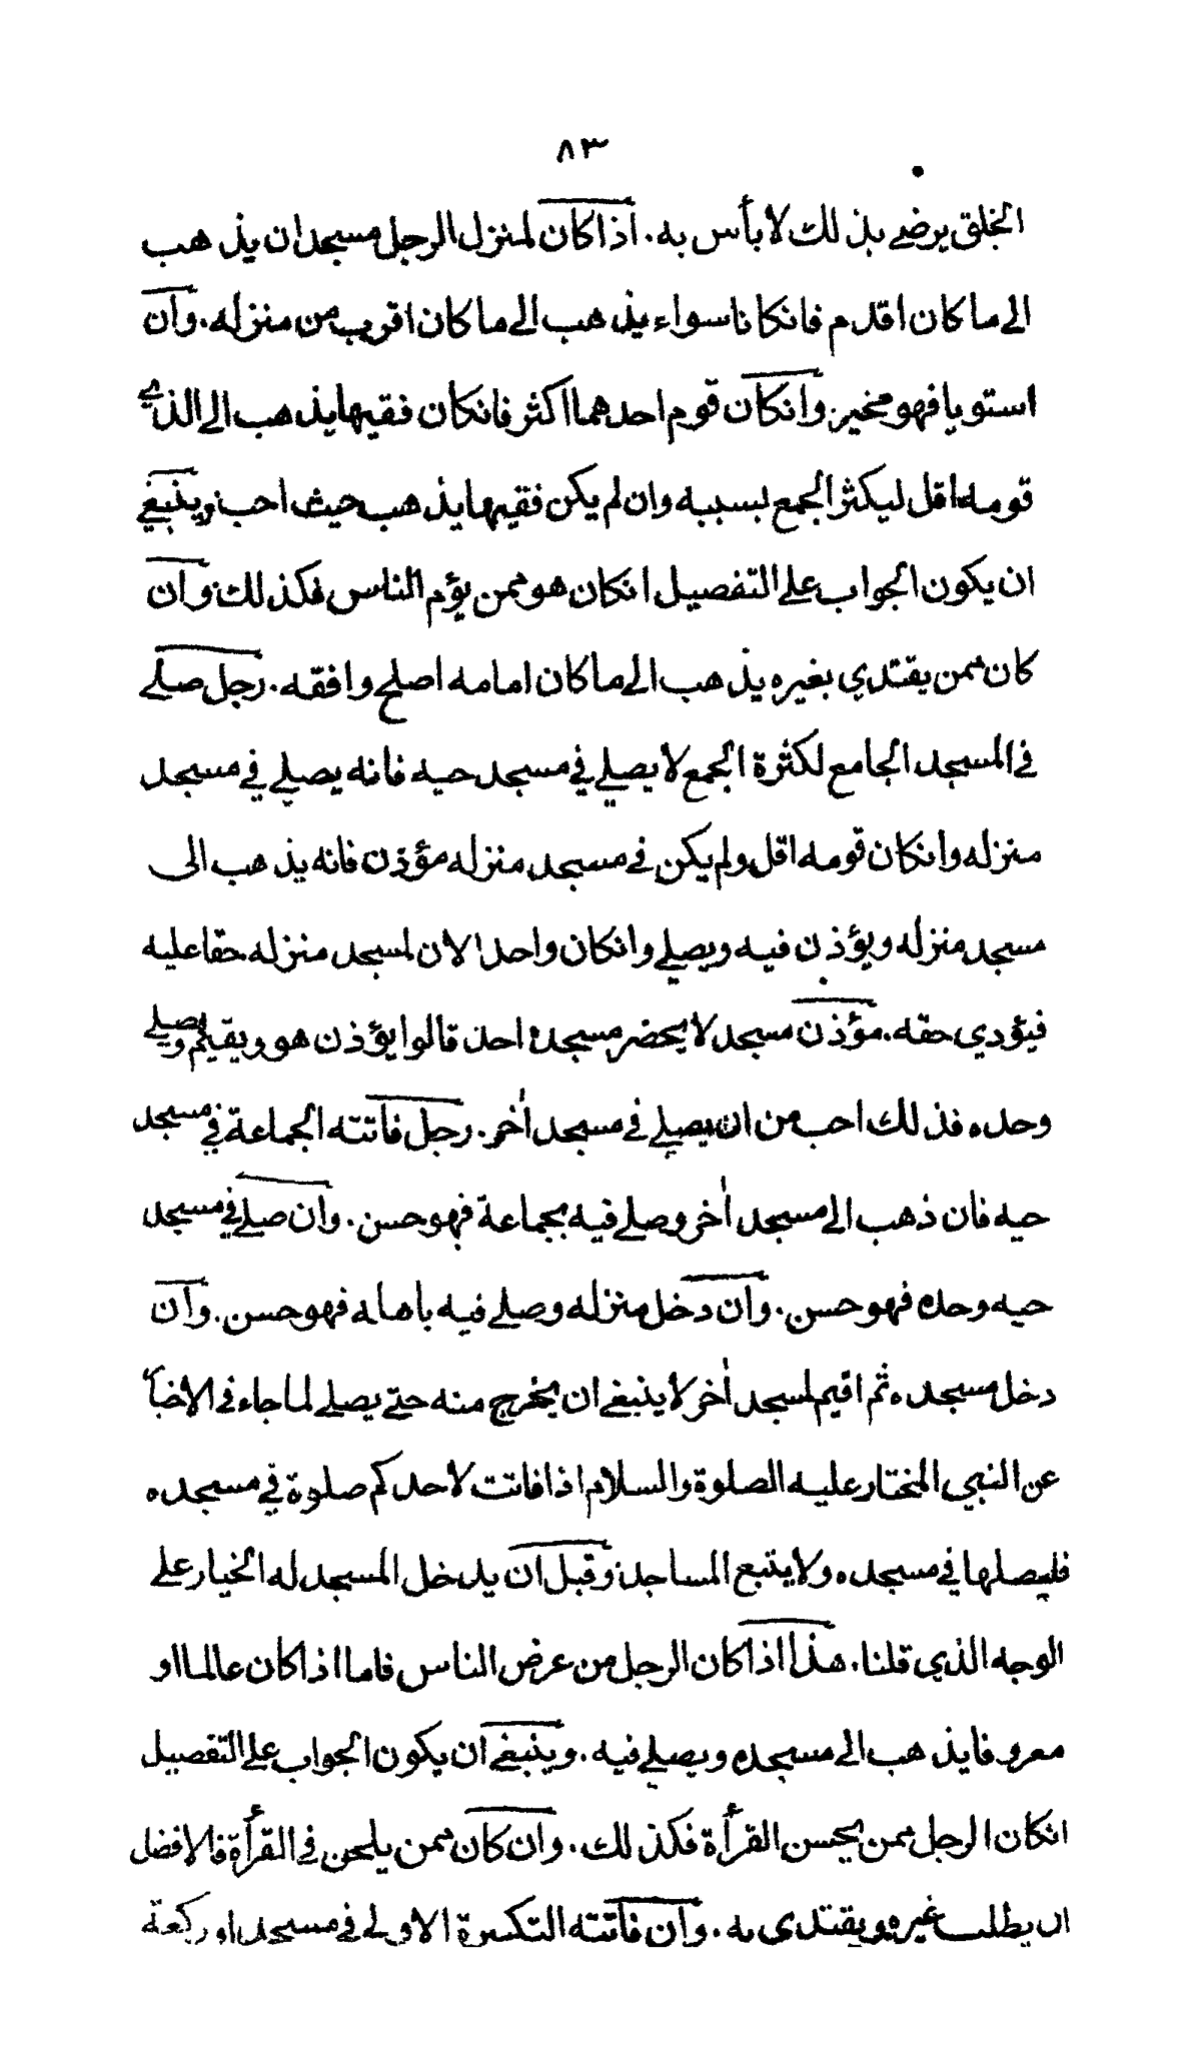 ٨٣
الخلق يرضى بذلك لا بأس به. اذا كان لمنزل الرجل مسجدان يذهب
الى ما كان اقدم فانكانا سواء يذهب الى ما كان اقرب من منزله. وان
استويا فهو مخير. وانكان قوم احدهما اكثر فانكان فقيها يذهب الى الذي
قومه اقل ليكثر الجمع بسببه وان لم يكن فقيها يذهب حيث احب. وينبغي
ان يكون الجواب على التفصيل انكان هو ممن يؤم الناس فكذلك. وان
كان ممن يقتدي بغيره يذهب الى ما كان امامه اصلح وافقه. رجل صلى
في المسجد الجامع لكثرة الجمع لا يصلي في مسجد حيه فانه يصلي في مسجد
منزله وانكان قومه اقل ولم يكن في مسجد منزله مؤذن فانه يذهب الى
مسجد منزله ويؤذن فيه ويصلي وانكان واحدا لان لمسجد منزله حقا عليه
فيؤدي حقه. مؤذن مسجد لا يحضر مسجده احد قالوا يؤذن هو ويقيم ويصلي
وحده فذلك احب من ان يصلي في مسجد أخر. رجل فاتته الجماعة في مسجد
حيه فان ذهب الى مسجد أخر وصلى فيه بجماعة فهو حسن. وان صلى في مسجد
حيه وحده فهو حسن. وان دخل منزله وصلى فيه باهله فهو حسن. وان
دخل مسجده ثم اقيم لمسجد أخر لا ينبغي ان يخرج منه حتى يصلي لما جاء في الاخبار
عن النبي المختار عليه الصلوة والسلام اذا فاتت لاحدكم صلوة في مسجده
فليصلها في مسجده ولا يتبع المساجد. وقبل ان يدخل المسجد له الخيار على
الوجه الذي قلنا. هذا اذا كان الرجل من عرض الناس فاما اذا كان عالما او
معروفا يذهب الى مسجده ويصلي فيه. وينبغي ان يكون الجواب على التفصيل
انكان الرجل ممن يحسن القرأة فكذلك. وان كان ممن يلحن في القرأة فالافضل
ان يطلب غيره ويقتدى به. وان فاتته التكبيرة الاولى في مسجد او ركعة